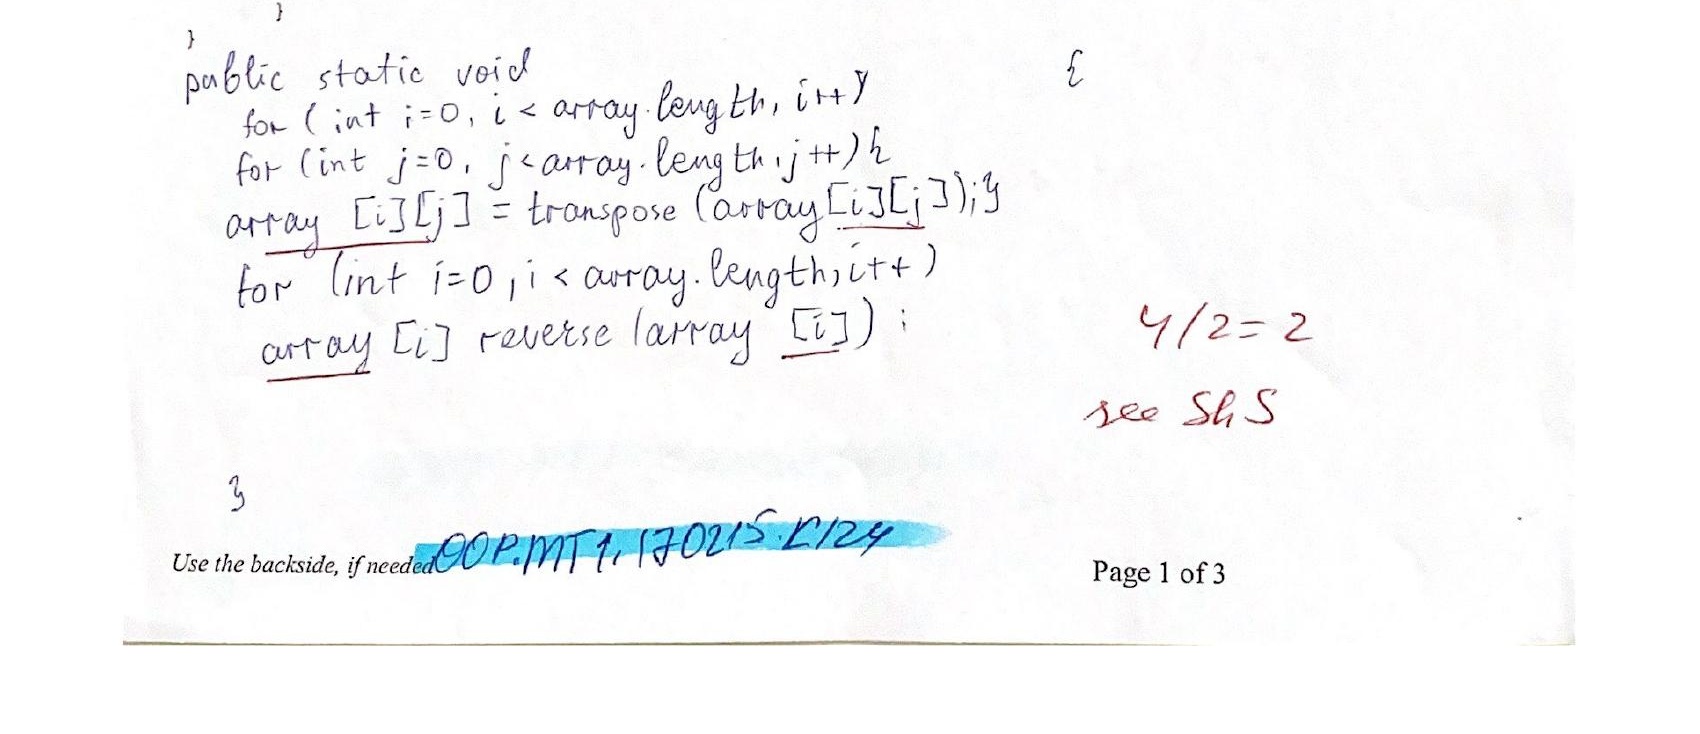 }
}
public static void {
for (int i=0, i < array.length, i++)
for (int j=0, j<array.length; j++){
array [i][j] = transpose (array[i][j]);}
for (int i=0, i < array.length, i++)
array [i] reverse (array [i]);
4/2=2
see ShS
}
Use the backside, if needed OOP.MT1.170215.L124
Page 1 of 3